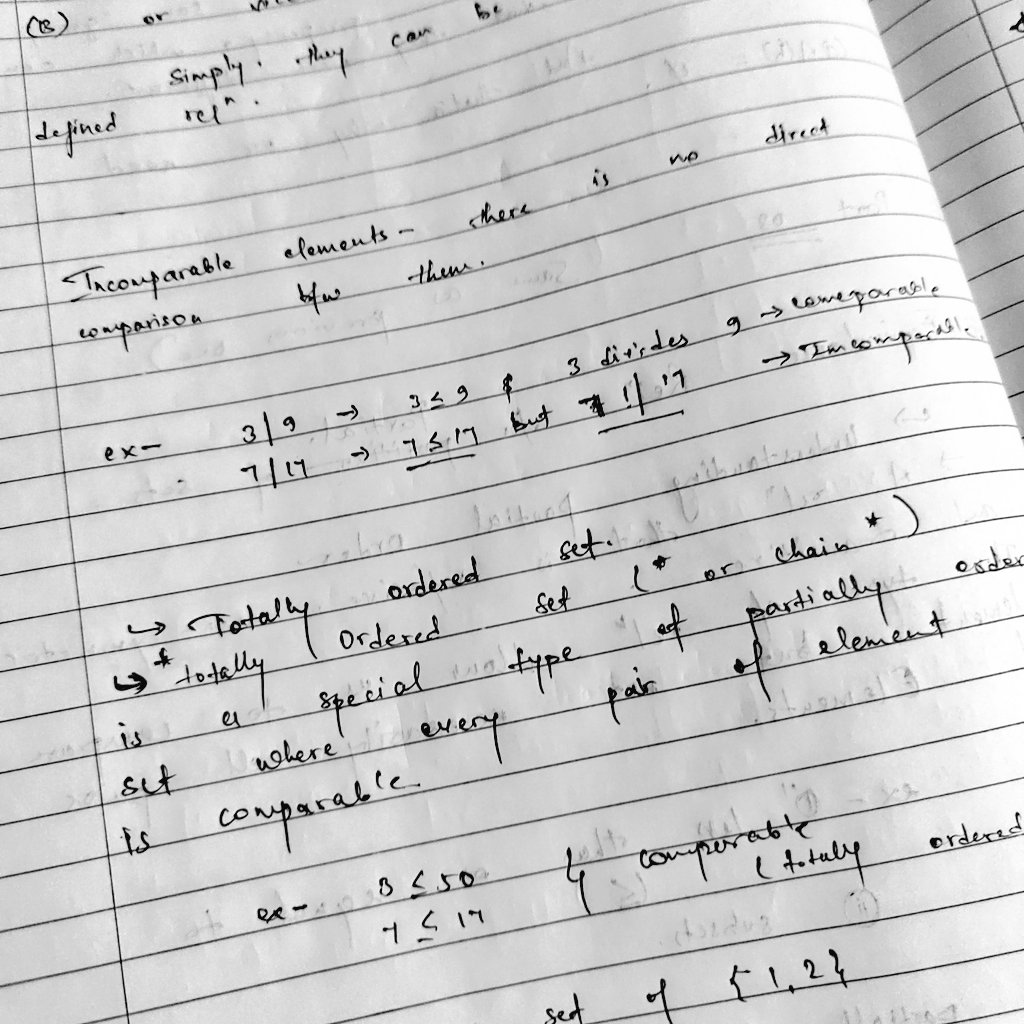 (B) or
simply. they can be
defined relⁿ.
Incomparable elements - there is no direct
comparison b/w them.
ex- 3|9 → 3 ≤ 9 & 3 divides 9 → comeparable
7|17 → 7 ≤ 17 but 7 | 17 → Imcomparable
↳ Totally ordered set.
↳ * totally Ordered set (* or chain *)
is a special type of partially order
set where every pair of element
is comparable.
ex- 3 ≤ 50 } comperable
7 ≤ 17 (totally ordered
set of {1,2}